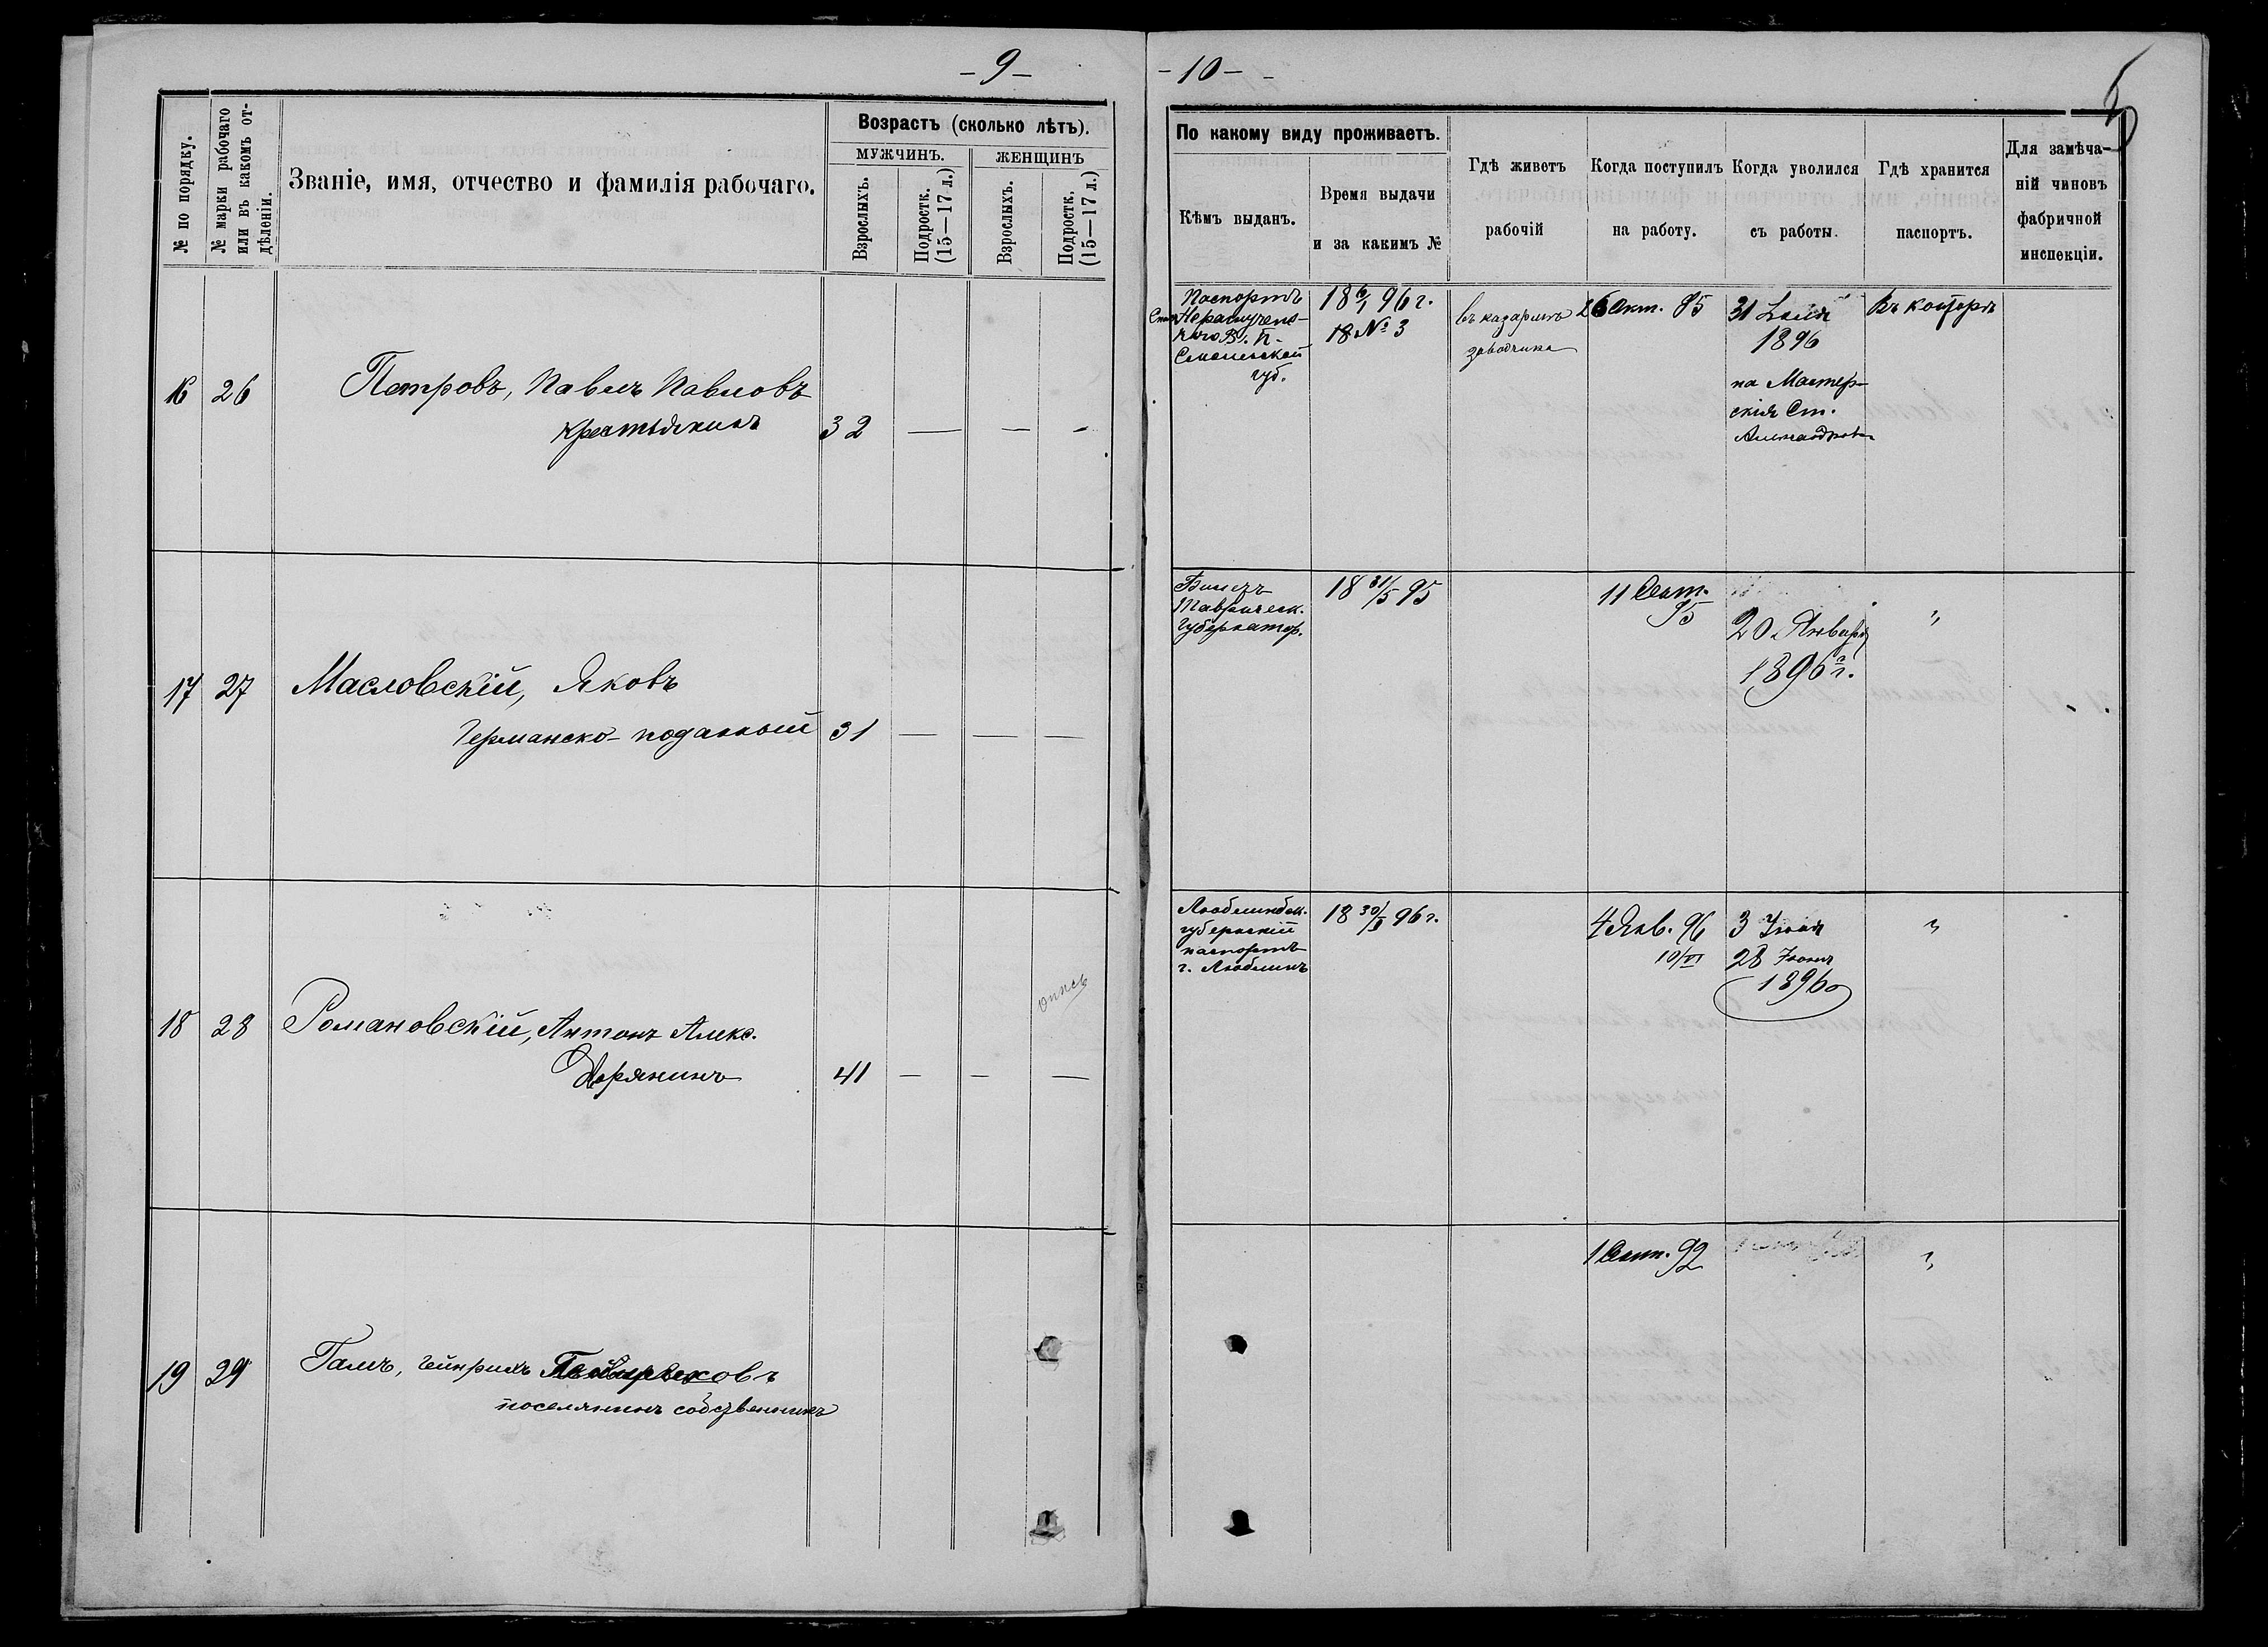 - 9 -
№ по порядку.
№ марки рабочаго
или въ какомъ от-
дѣленіи.
Званіе, имя, отчество и фамилія рабочаго.
Возрастъ (сколько лѣтъ).
МУЖЧИНЪ.
ЖЕНЩИНЪ
Взрослыхъ.
Подростк.
(15—17 л.)
Взрослыхъ.
Подростк.
(15—17 л.)
16 26 Петровъ, Павелъ Павловъ
крестьянинъ 32 — — -
17 27 Масловскій, Яковъ
Германско-поданный 31 — — —
опись
18 28 Романовскій, Антонъ Алекс.
Дворянинъ 41 — — —
19 29 Гамъ, Гейнрихъ
поселянинъ собственникъ
- 10 - -
5
По какому виду проживаетъ.
Кѣмъ выданъ.
Время выдачи
и за какимъ №
Гдѣ живетъ
рабочій
Когда поступилъ
на работу.
Когда уволился
съ работы.
Гдѣ хранится
паспортъ.
Для замѣча-
ній чиновъ
фабричной
инспекціи.
Паспортъ
Смоленской
губ.
18 6/1 96 г.
18 № 3
въ казармѣ
заводчика
26 Окт. 95
31
1896
на Мастер-
скія Ст.
Въ конторѣ
Билетъ
Таврическ.
Губернатор.
18 31/5 95
11 Сент.
95
20 Января
1896 г.
"
Люблинск.
губернскій
паспортъ
г. Люблинъ
96 г.
4 Янв. 96
10/VI
3 Іюня
28 Іюня
1896
"
1 Сент. 92
"